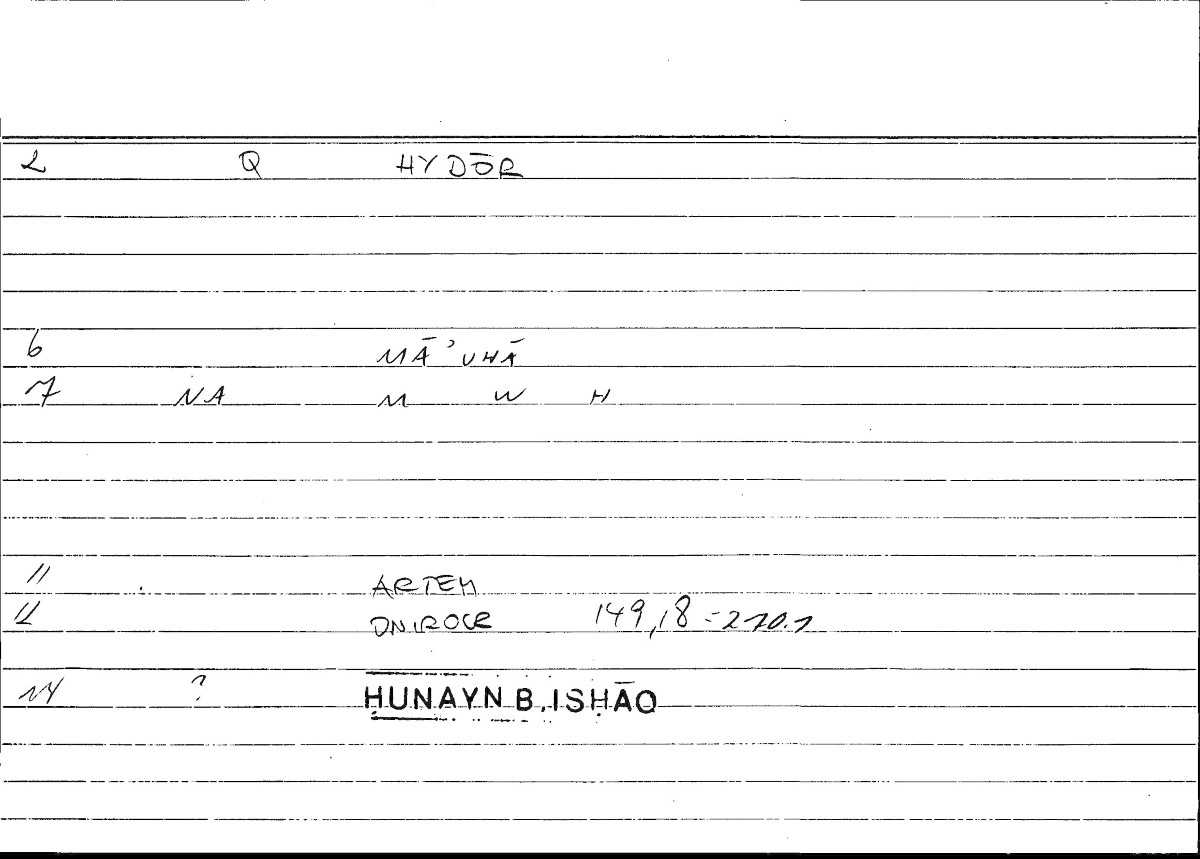 2 Q HYDŌR
6 MĀʾUHĀ
7 NA M W H
11 ARTEM
12 ONIROCR 149,18 = 270.1
14 ? ḤUNAYN B. ISḤĀQ